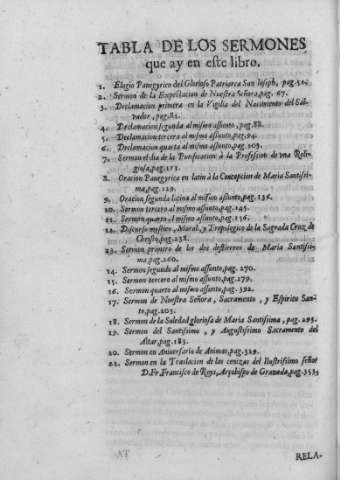 TABLA DE LOS SERMONES
que ay en este libro.
1. Elogio Panegyrico del Glorioso Patriarca San Ioseph, pag.
2. Sermon de la Expectacion de Nuestra Señora, pag. 67.
3. Declamacion primera en la Vigilia del Nacimento del Sal-
vador, pag. 81.
4. Declamacion segunda al mismo assunto, pag. 88.
5. Declamacion tercera al mismo assunto, pag. 94.
6. Declamacion quarta al mismo assunto, pag. 103.
7. Sermon el dia de la Purificación à la Profession de vna Reli-
giosa, pag. 113.
8. Oracion Panegyrica en latin à la Concepcion de Maria Santissi-
ma, pag. 129.
9. Oracion segunda latina al mismo assunto, pag. 136.
10. Sermon tercero al mismo assunto, pag. 145.
11. Sermon quarto al mismo assunto, pag. 156.
12. Discurso mystico, Moral, y Tropologico de la Sagrada Cruz de
Christo, pag. 238.
13. Sermon primero de los dos destierros de Maria Santissi-
ma, pag. 260.
14. Sermon segundo al mismo assunto, pag. 270.
15. Sermon tercero al mismo assunto, pag. 279.
16. Sermon quarto al mismo assunto, pag. 392.
17. Sermon de Nuestra Señora, Sacramento, y Espiritu San-
to, pag. 203.
18. Sermon de la Soledad gloriosa de Maria Santissima, pag. 295.
19. Sermon del Santissimo, y Augustissimo Sacramento del
Altar, pag. 183.
20. Sermon en Aniversario de Animas, pag. 329.
21. Sermon en la Traslacion de las cenizas del Ilustrissimo señor
D. Fr. Francisco de Roys, Arçobispo de Granada, pag. 353.
RELA-